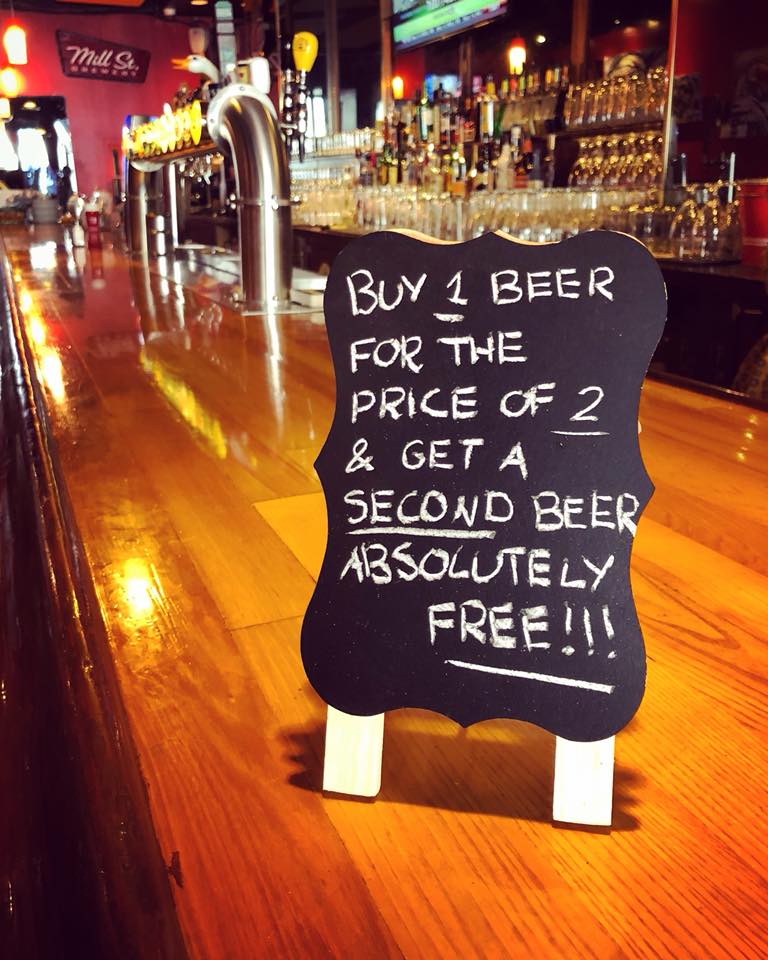 Mill St.
BREWERY
BUY 1 BEER
FOR THE
PRICE OF 2
& GET A
SECOND BEER
ABSOLUTELY
FREE!!!